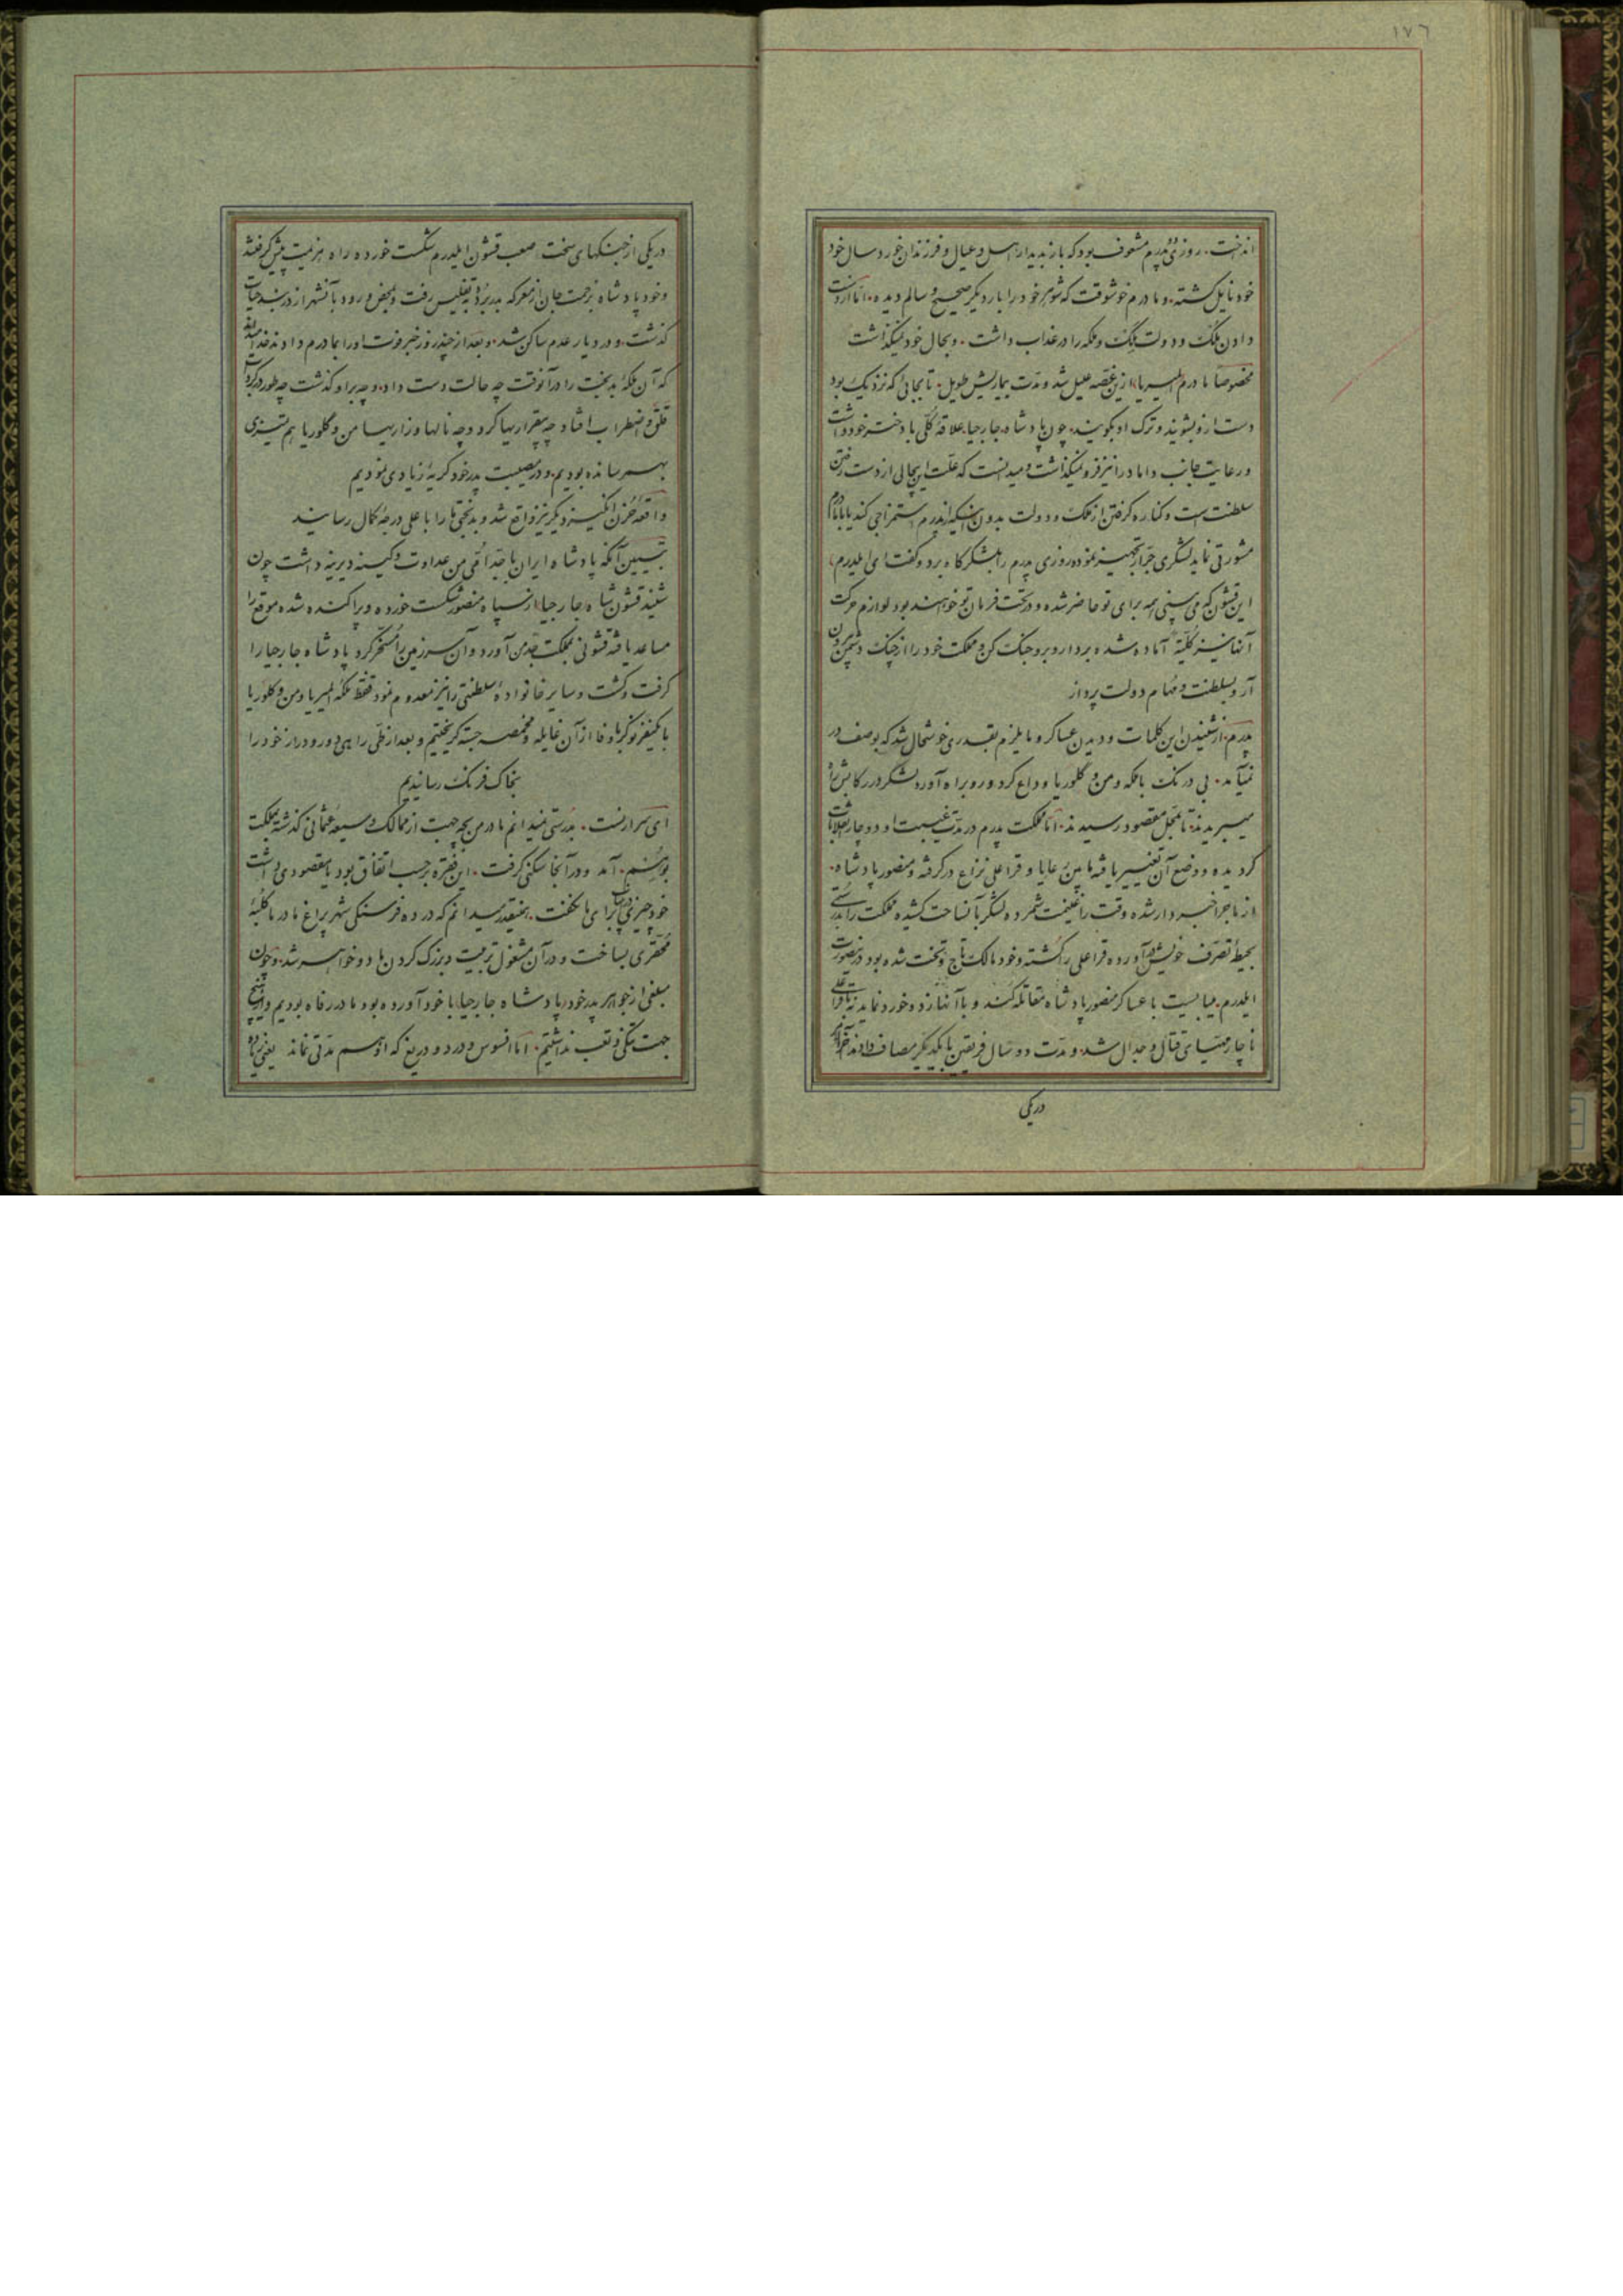 ١٧٦
انداخت. روزی دو پدرم مشعوف بود که باز بدیدار اهل و عیال و فرزندان خورد سال خود
خود نایل گشته. و مادرم خوشوقت که شوهر خود را بار دیگر صحیح و سالم دیده. اما از دست
دادن ملک و دولت ملک و ملکه را در عذاب داشت. و بحال خود نمیگذاشت
مخصوصا مادرم المیریا، ازین غصه علیل شد و مدت بیماریش طویل. تا بجائی که نزدیک بود
دست ازو بشویند و ترک او بگویند. چون پادشاه جارجیا، علاقه کلی با دختر خود داشت
و رعایت جانب داماد را نیز فرو نمیگذاشت و میدانست که علت این بیحالی از دست رفتن
سلطنت است و کناره گرفتن از ملک و دولت بدون اینکه از پدرم استمزاجی کند یا با مادرم
مشورتی نماید لشکری جرار تجهیز نموده روزی پدرم را بلشکرگاه برد و گفت ای ایلدرم،
این قشون که می بینی همه برای تو حاضر شده و در تحت فرمان تو خواهند بود لوازم حرکت
آنها نیز کلیة آماده شده بردار و برو جنگ کن و مملکت خود را از چنگ دشمن بیرون
آر و بسلطنت و مهام دولت پرداز
پدرم. از شنیدن این کلمات و دیدن عساکر و مایلزم بقدری خوشحال شد که بوصف در
نمیآمد. بی درنگ با ملکه و من و گلوریا وداع کرد و رو براه آورد لشکر در رکابش راه
میبریدند. تا بمحل مقصود رسیدند. اما مملکت پدرم در مدت غیبت او دوچار انقلابات
گردیده و وضع آن تغییر یافته مابین رعایا و قراعلی نزاع درگرفته و منصور پادشاه.
از ماجرا خبردار شده وقت را غنیمت شمرده لشکر بآنساحت کشیده مملکت را بدرستی
بحیطه تصرف خویش در آورده قراعلی را کشته و خود مالک تاج و تخت شده بود درینصورت
ایلدرم. میبایست با عساکر منصور پادشاه مقاتله کند و با آنها زد و خورد نماید نه با قراعلی
ناچار مهیای قتال و جدال شد. و مدت دو سال فریقین با یکدیگر مصاف دادند آخرالامر
دریکی
دریکی از جنگهای سخت صعب قشون ایلدرم شکست خورده راه هزیمت پیش گرفتند
و خود پادشاه بزحمت جان از معرکه بدر برده بتفلیس رفت و بمحض ورود بآنشهر از دربند حیات
گذشت. و در دیار عدم ساکن شد. و بعد از چند روز خبر فوت او را بمادرم دادند خدا میداند
که آن ملکه بدبخت را در آنوقت چه حالت دست داد. و چه بر او گذشت چه طور در گرداب
قلق و اضطراب افتاد چه بیقراریها کرد و چه نالها و زاریها من و گلوریا هم تمیزی
بهم رسانده بودیم. و در مصیبت پدر خود گریه زیادی نمودیم
واقعه حزن انگیز دیگر نیز واقع شد و بدبختی ما را با علی درجه کمال رسانید
تبیین آنکه پادشاه ایران با جد امی من عداوت و کینه دیرینه داشت چون
شنید قشون شاه جارجیا، از سپاه منصور شکست خورده و پراکنده شده موقع را
مساعد یافته قشونی بمملکت جد من آورد و آن سرزمین را مسخر کرد پادشاه جارجیا را
گرفت و کشت و سایر خانواده سلطنتی را نیز معدوم نمود فقط ملکه المیریا و من و گلوریا
با یکنفر نوکر باوفا از آن غایله و مخمصه جسته گریختیم و بعد از طی راهی دور و دراز خود را
بخاک فرنک رساندیم
ای سرارنست. بدرستی نمیدانم مادر من بچه جهت از ممالک وسیعه عثمانی گذشته بمملکت
بوهم. آمد و در آنجا سکنی گرفت. این فقره بر حسب اتفاق بود یا مقصودی داشت
خود چیزی در آن باب برای ما نگفت. همینقدر میدانم که در ده فرسنگی شهر پراغ مادر ما کلبه
محقری بساخت و در آن مشغول تربیت و بزرگ کردن ما دو خواهر شد. و چون
مبلغی از جواهر پدر خود پادشاه جارجیا، با خود آورده بود ما در رفاه بودیم و از هیچ
جهت تنگی و تعب نداشتیم. اما افسوس و درد و دریغ که او هم مدتی نماند یعنی